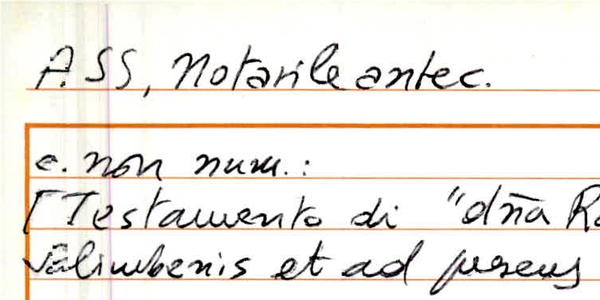 ASS, Notarile antec.
c. non num.:
[Testamento di "dña Ra
Salimbenis et ad presens